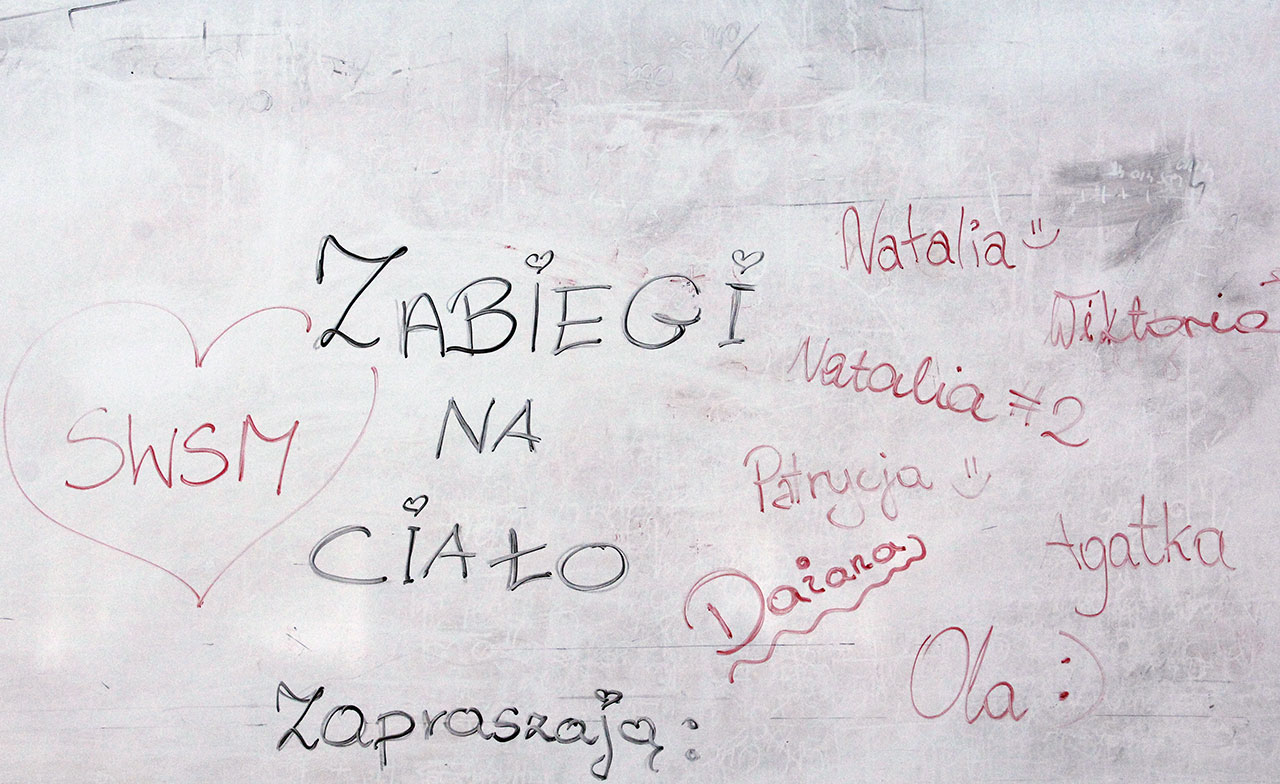 ZABIEGI
NA
CIAŁO
Zapraszają:
SWSM
Natalia
Wiktoria
Natalia #2
Patrycja
Agatka
Daiana
Ola :)